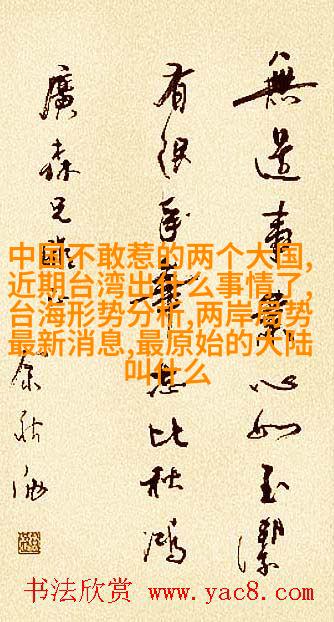 無邊事業心如玉潔
有限年華比秋鴻
廣森兄
中国不敢惹的两个大国,
近期台湾出什么事情了,
台海形势分析,两岸局势
最新消息,最原始的大陆
叫什么
书法欣赏 www.yac8.com